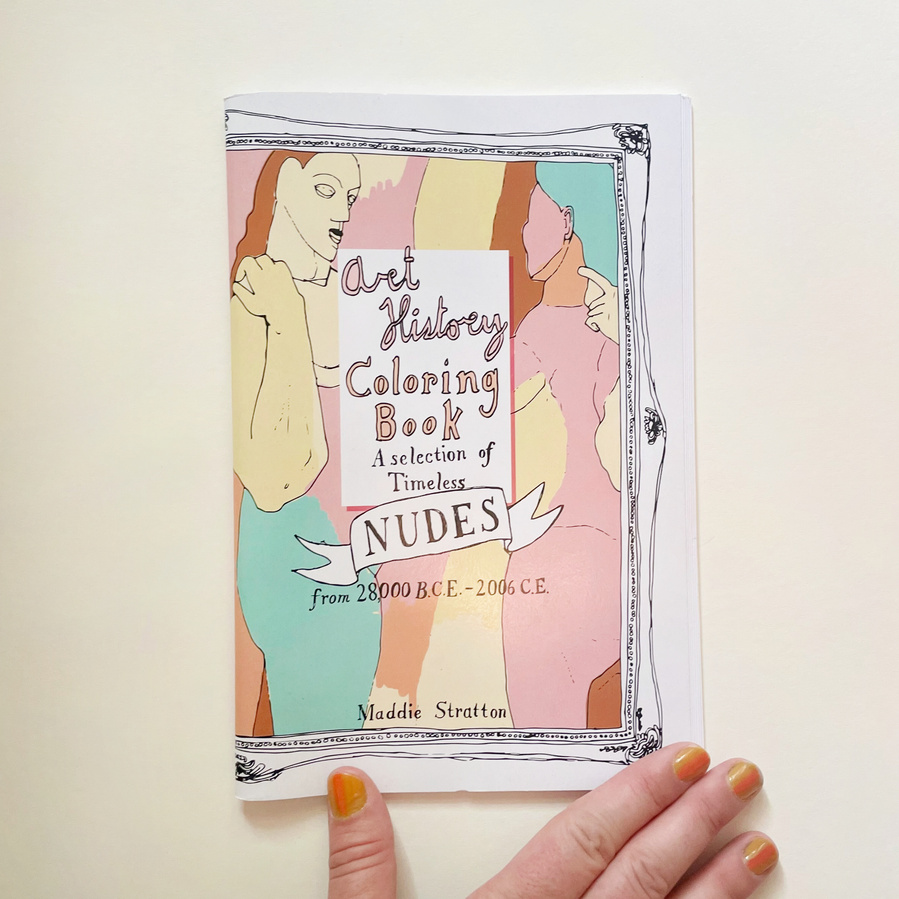 Art
History
Coloring
Book
A selection of
Timeless
NUDES
from 28,000 B.C.E.-2006 C.E.
Maddie Stratton